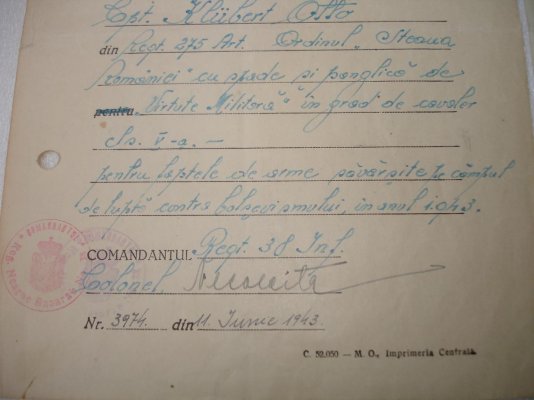 Cpt. Klübert Otto
din Regt. 275 Art. Ordinul „Steaua
României" cu spade și panglică de
pentru „Virtute Militară" în grad de cavaler
cls. V-a. —
pentru faptele de arme săvârșite pe câmpul
de luptă contra bolșevismului, în anul 1.943.
COMANDANTUL Regt. 38 Inf.
Colonel
Nr. 3974. din 11 Iunie 1943.
C. 52.050 — M. O., Imprimeria Centrală